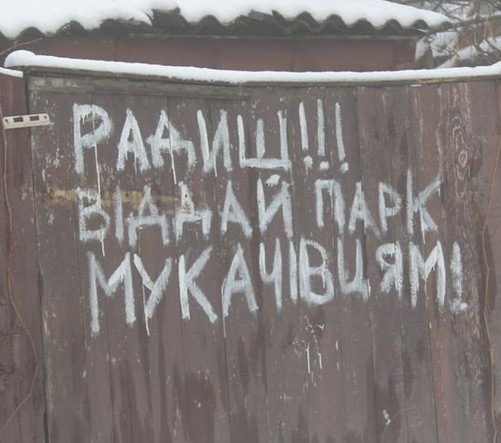 РАДИШ!!!
ВІДДАЙ ПАРК
МУКАЧІВЦЯМ!